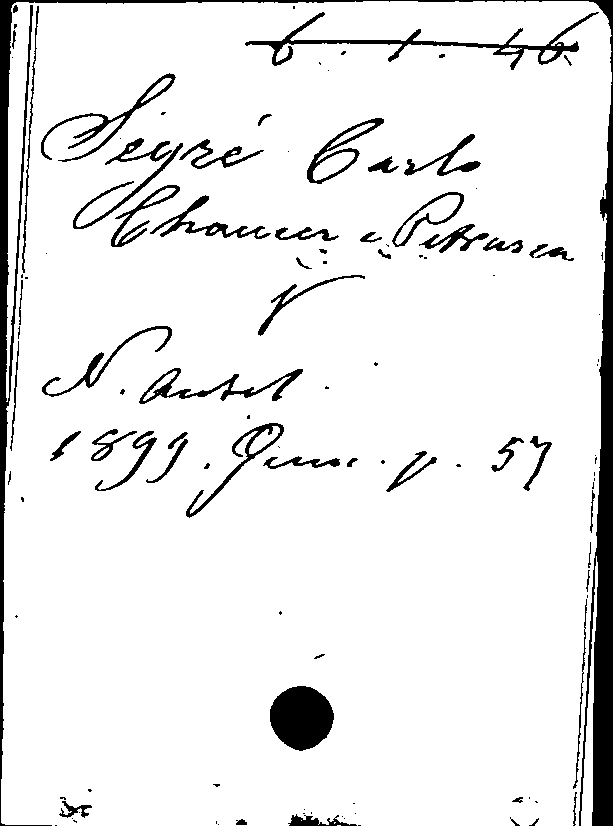 6. 1. 46.
Segré Carlo
Chaucer e Petrarca
N. Antol.
1899. Genn. p. 57